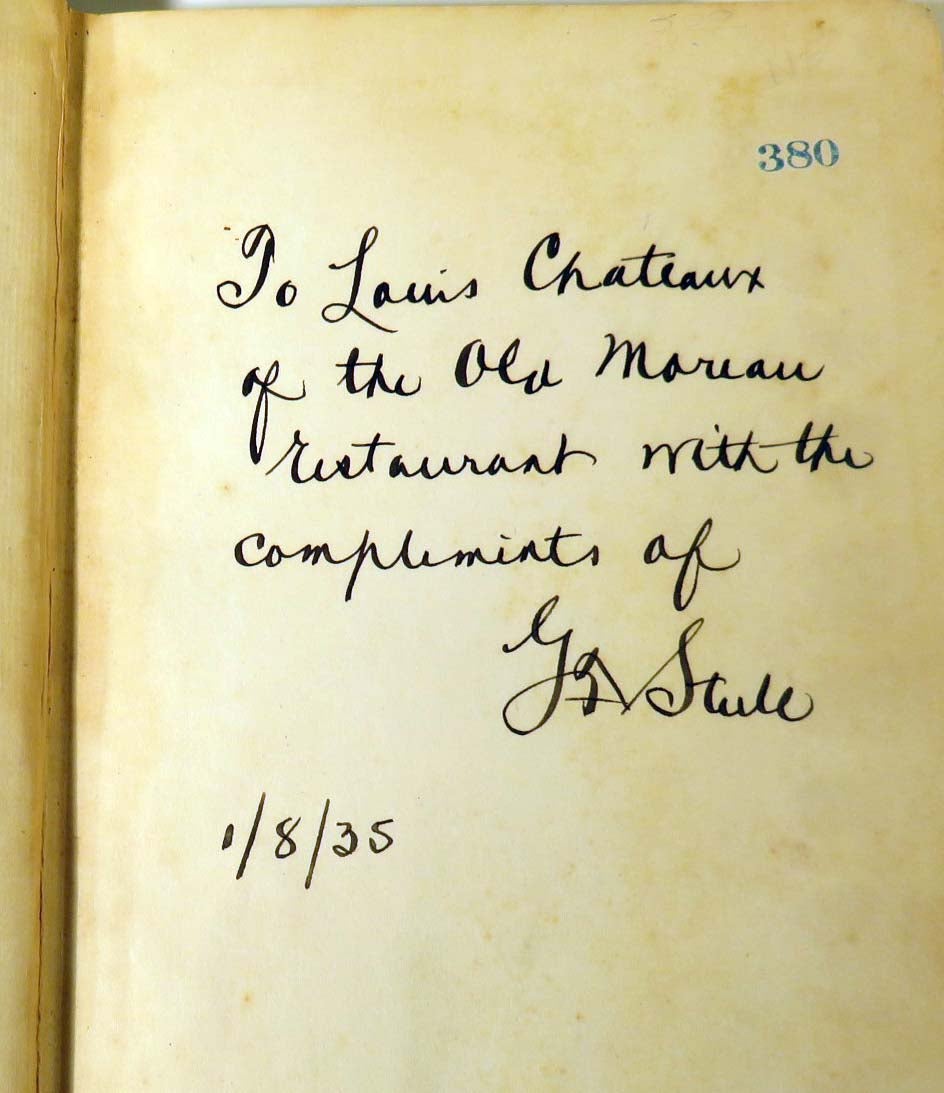 380
To Louis Chateaux
of the Old Moreau
restaurant with the
compliments of
Stull
1/8/35